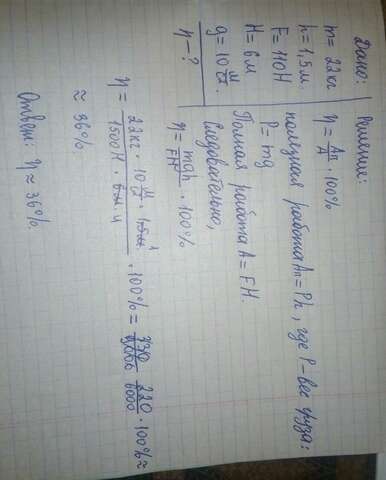 Дано:
m = 22кг
h = 1,5м.
F = 110Н
H = 6м
g = 10 м/с².
η — ?
Решение:
η = Aп/A · 100%
полезная работа Aп = Ph, где P – вес груза:
P = mg
Полная работа A = FH.
Следовательно,
η = mgh/FH · 100%
η = 22кг · 10 м/с² · / 1500Н · · 100% = 220/6000 · 100% ≈
≈ 36%
Ответ: η ≈ 36%.